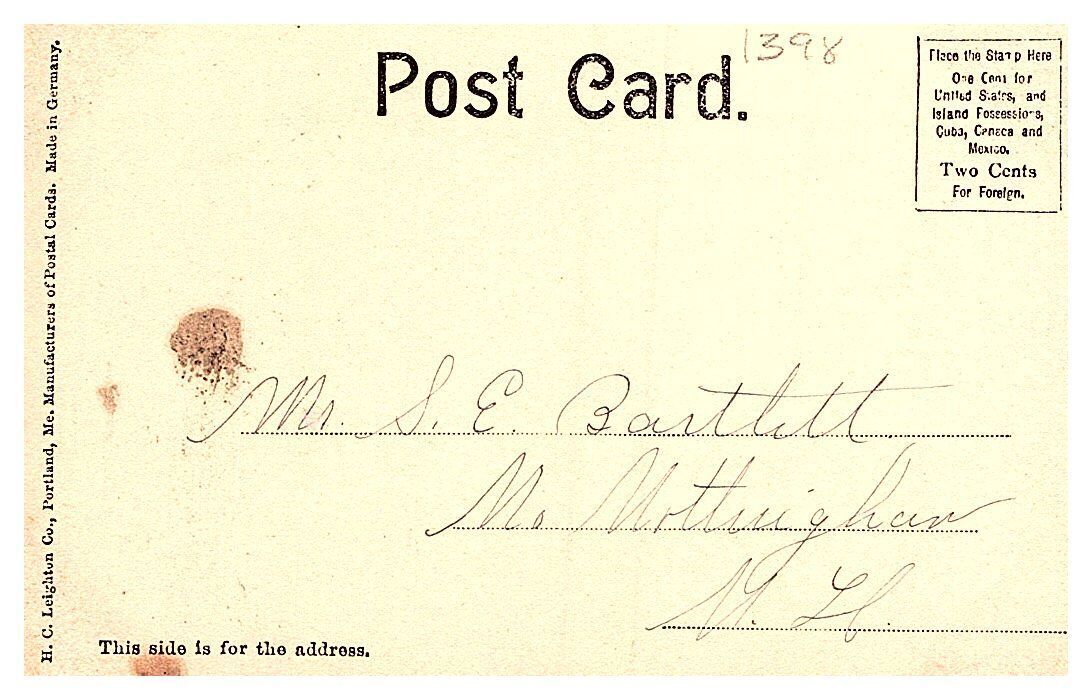 1398
Post Card.
Place the Stamp Here
One Cent for
United States, and
Island Possessions,
Cuba, Canada and
Mexico.
Two Cents
For Foreign.
H. C. Leighton Co., Portland, Me. Manufacturers of Postal Cards. Made in Germany.
Mr. S. E. Bartlett
No. Nottingham
N. H.
This side is for the address.